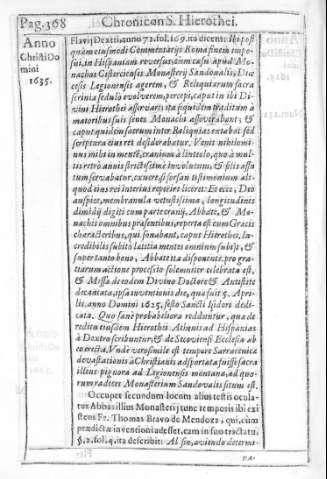 Pag. 368
Chronicon S. Hierothei.
Anno
Christi Do
mini
1635.
Flavij Dextri, anno 72. fol. 169. ita dicens: Ibi post
quàm eiusmodi Commentarijs Romæ finem impo-
sui, in Hispaniam reversus, cùm casu apud Mo-
nachos Cistercienses Monasterij Sandoualis, Diœ
cesis Legionensis agerem, & Reliquiarum sacra
scrinia sedulò evolverem, percepi, caput in ibi Di-
vini Hierothei asservari: ita siquidem traditum à
maioribus suis senes Monachi asseverabant; &
caput quidem sacrum inter Reliquias extabat sed
scriptura eius rei desiderabatur. Venit nihilomi-
nus mihi in mente, craniom à linteolo, quo à mul-
tis retrò annis strictissimè involutum, & filis assu
tum servabatur, exuere, si forsan testimonium ali-
quod eius rei interius reperire liceret: Et ecce, Deo
auspice, membranula vetustissima, longitudinis
dimidij digiti comparte oranij, Abbate, & Mo-
nachis omnibus præsentibus, reperta est cum Græcis
characteribus, qui sonabant, caput Hierothei, In-
credibilis subitò lætitia mentes omnium subijt, &
super tanto bono, Abbate ita disponente, pro gra-
tiarum actione processio solemniter celebrata est,
& Missa de eodem Divino Doctore & Antistite
decantata, ipsa inventionis die, quæ fuit 5. Apri-
lis, anno Domini 1625, festo Sancti Isidori dedi-
cata. Quo sanè probabiliora redduntur, quæ de
reditu eiusdem Hierothei Athenis ad Hispanias
à Dextro scribuntur, & de Secoviensi Ecclesia ab
eo erecta, Vnde verosimile est tempore Sarracenicæ
devastationis à Christianis adsportata fuisse sacra
illius pignora ad Legionensis montana, ad quo-
rum radices Monasterium Sandovalis situm est.
Occupet secundum locum alius testis ocula-
tus Abbas illius Monasterij tunc temporis ibi exi
stens Fr. Thomas Bravo de Mendoza, qui, cùm
prædictæ inventioni adesset, eam in suo tractatu,
§. 2. fol. 9. ita describit: Al fin, aviendo determi-